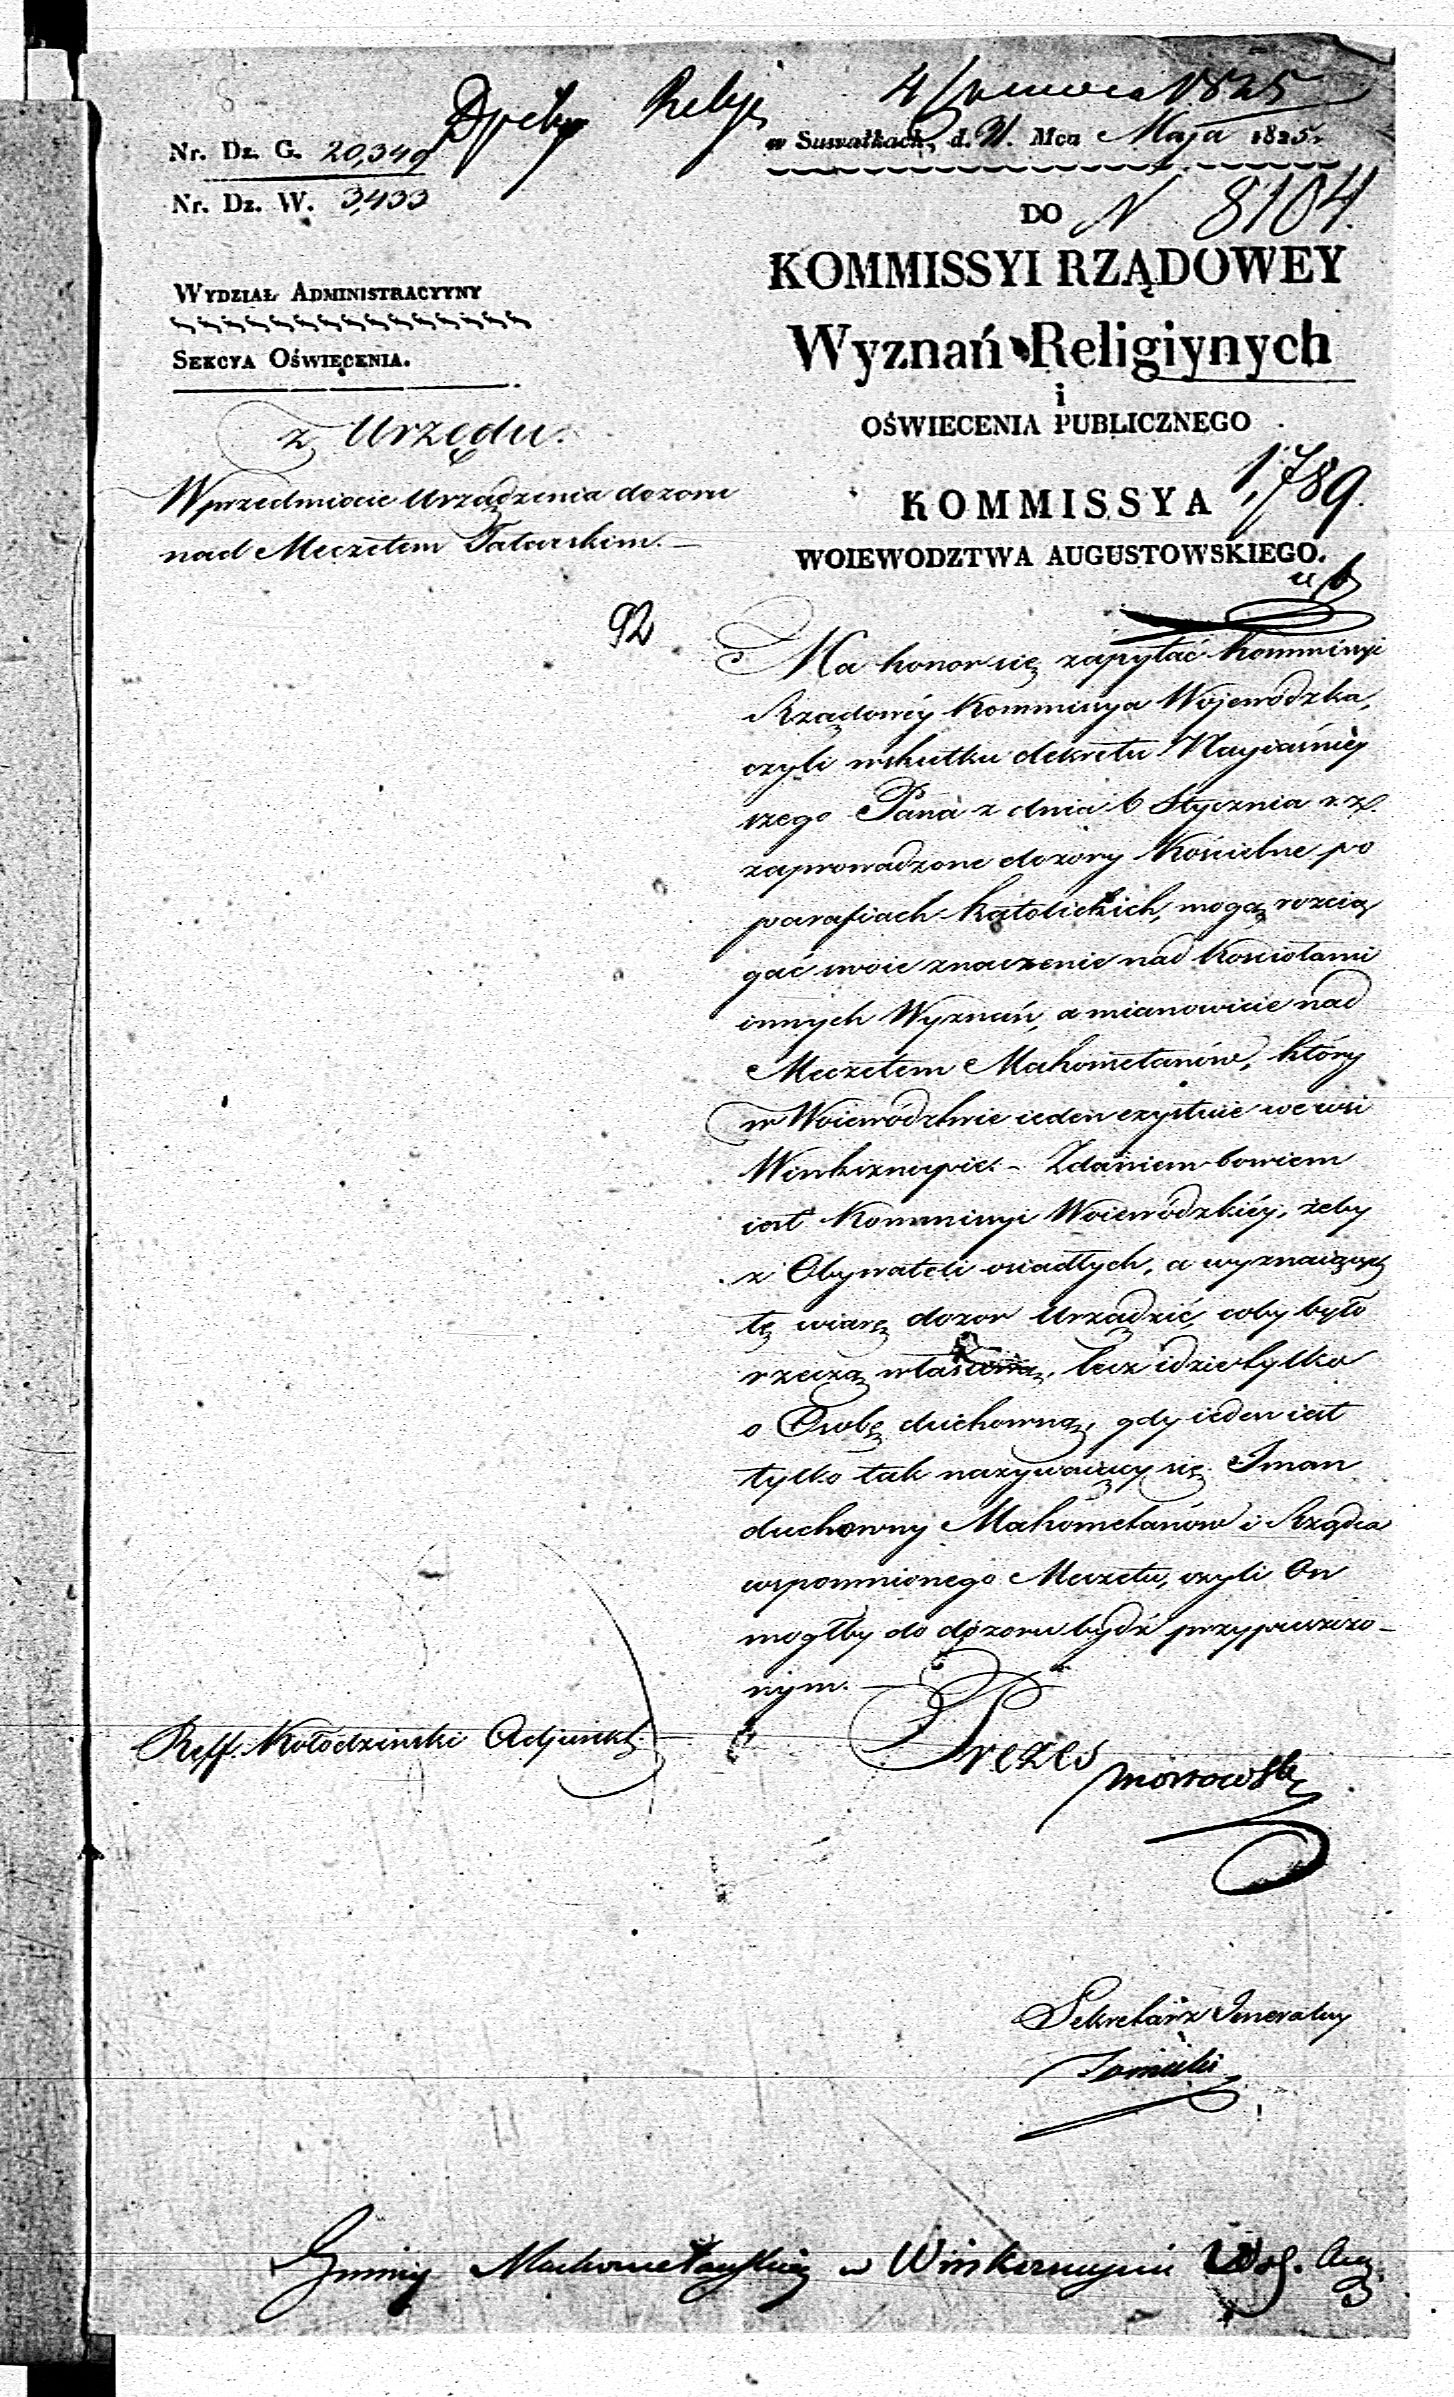 4 Czerwca 1825
Relig.
Nr. Dz. G. 20,349
Nr. Dz. W. 3,433
w Suwałkach, d. 21. Mca Maja 1825.
DO N 8104.
WYDZIAŁ ADMINISTRACYYNY
SEKCYA OŚWIĘCENIA.
KOMMISSYI RZĄDOWEY
Wyznań Religiynych
i
OŚWIECENIA PUBLICZNEGO
KOMMISSYA 1,789.
WOIEWODZTWA AUGUSTOWSKIEGO.
z Urzędu.
W przedmiocie Urządzenia dozoru
nad Meczetem Tatarskim. —
92
Ma honor się zapytać Kommissyi
Rządowéy Kommissya Wojewódzka,
czyli wskutku dekretu Nayiaśniéy
szego Pana z dnia 6 Stycznia r. z.
zaprowadzone dozory Kościelne po
parafiach Katolickich, mogą rozcią
gać swoie znaczenie nad Kosciołami
innych Wyznań, a mianowicie nad
Meczetem Mahometanów, który
w Woiewództwie ieden exystuie we wsi
Winksznupie. – Zdaniem bowiem
iest Kommissyi Woiewódzkiéy, żeby
z Obywateli osiadłych, a wyznaiących
tę wiarę dozor Urządzić, coby było
rzeczą właściwą, lecz idzie tylko
o Osobę duchowną, gdy ieden iest
tylko tak nazywaiący się Iman
duchowny Mahometanów i Rządca
wspomnionego Meczetu, czyli On
mogłby do dozoru bydź przypuszczo-
nym. —
Reff. Kołodzinski Adjunkt.
Prezes
Sekretarz Jeneralny
Gminy Machometańskiey w Winksznupiu Woj. Aug.